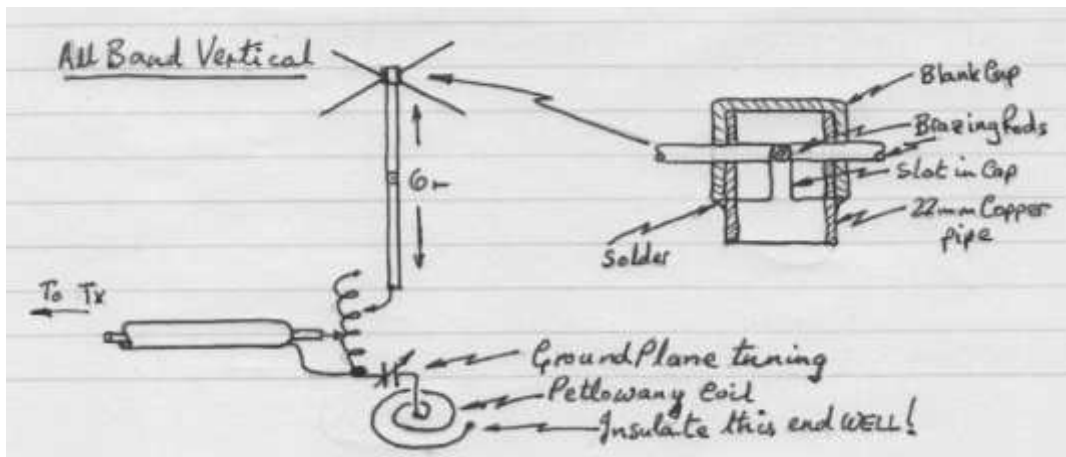 All Band Vertical
Blank Cap
Brazing Rods
Slot in Cap
22mm Copper
pipe
Solder
6m
To Tx
Ground Plane tuning
Petlowany Coil
Insulate this end WELL!